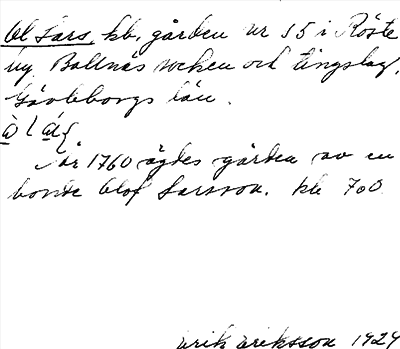 Ol Lars, kb. gården nr 15 i Röste
by, Bollnäs socken och tingslag,
Gävleborgs län.
År 1760 ägdes gården av en
bonde Olof Larsson. kb 700
Erik Eriksson 1929